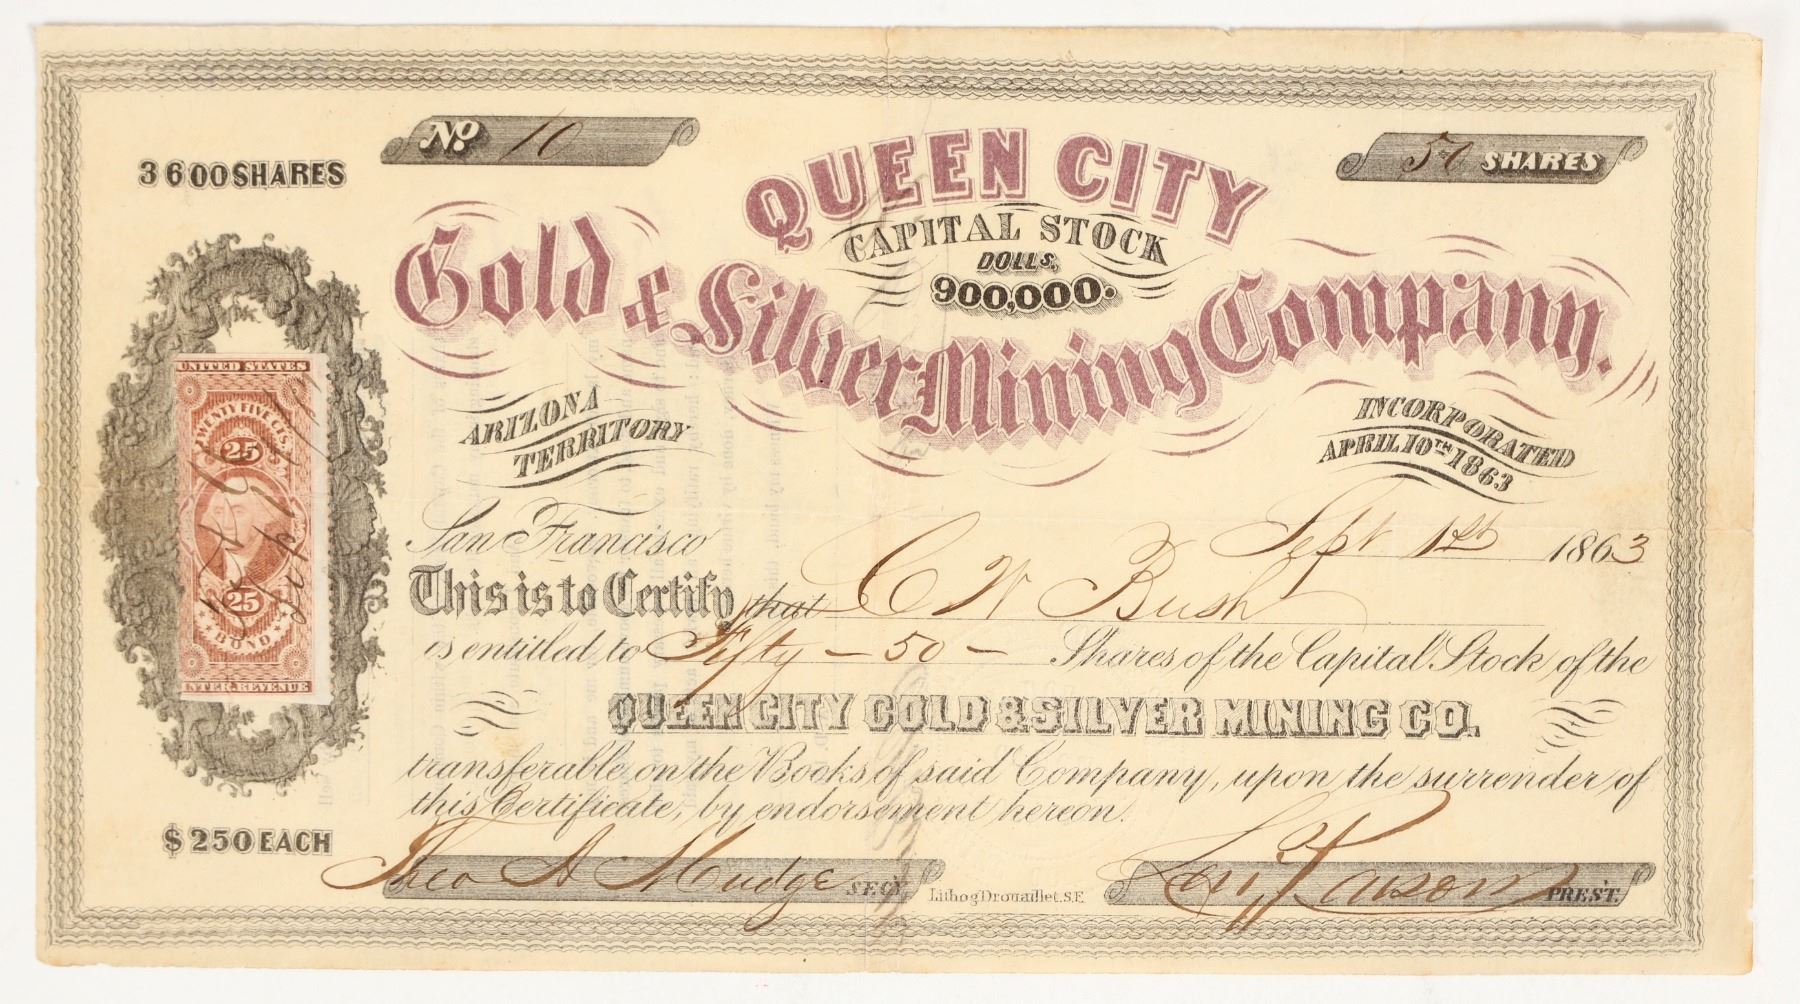 No. 10
50 SHARES
3600 SHARES
QUEEN CITY
CAPITAL STOCK
DOLLS,
900,000.
Gold & Silver Mining Company.
ARIZONA
TERRITORY
INCORPORATED
APRIL 10TH 1863
UNITED STATES
TWENTY FIVE CTS.
25
25
BOND
INTER. REVENUE
San Francisco Sept 1st 1863
This is to Certify that C W Bush
is entitled to Fifty - 50 - Shares of the Capital Stock of the
QUEEN CITY GOLD & SILVER MINING CO.
transferable on the Books of said Company, upon the surrender of
this Certificate, by endorsement hereon.
$250 EACH
Theo A Mudge SECY.
Lithog Drouaillet. S.F.
PREST.